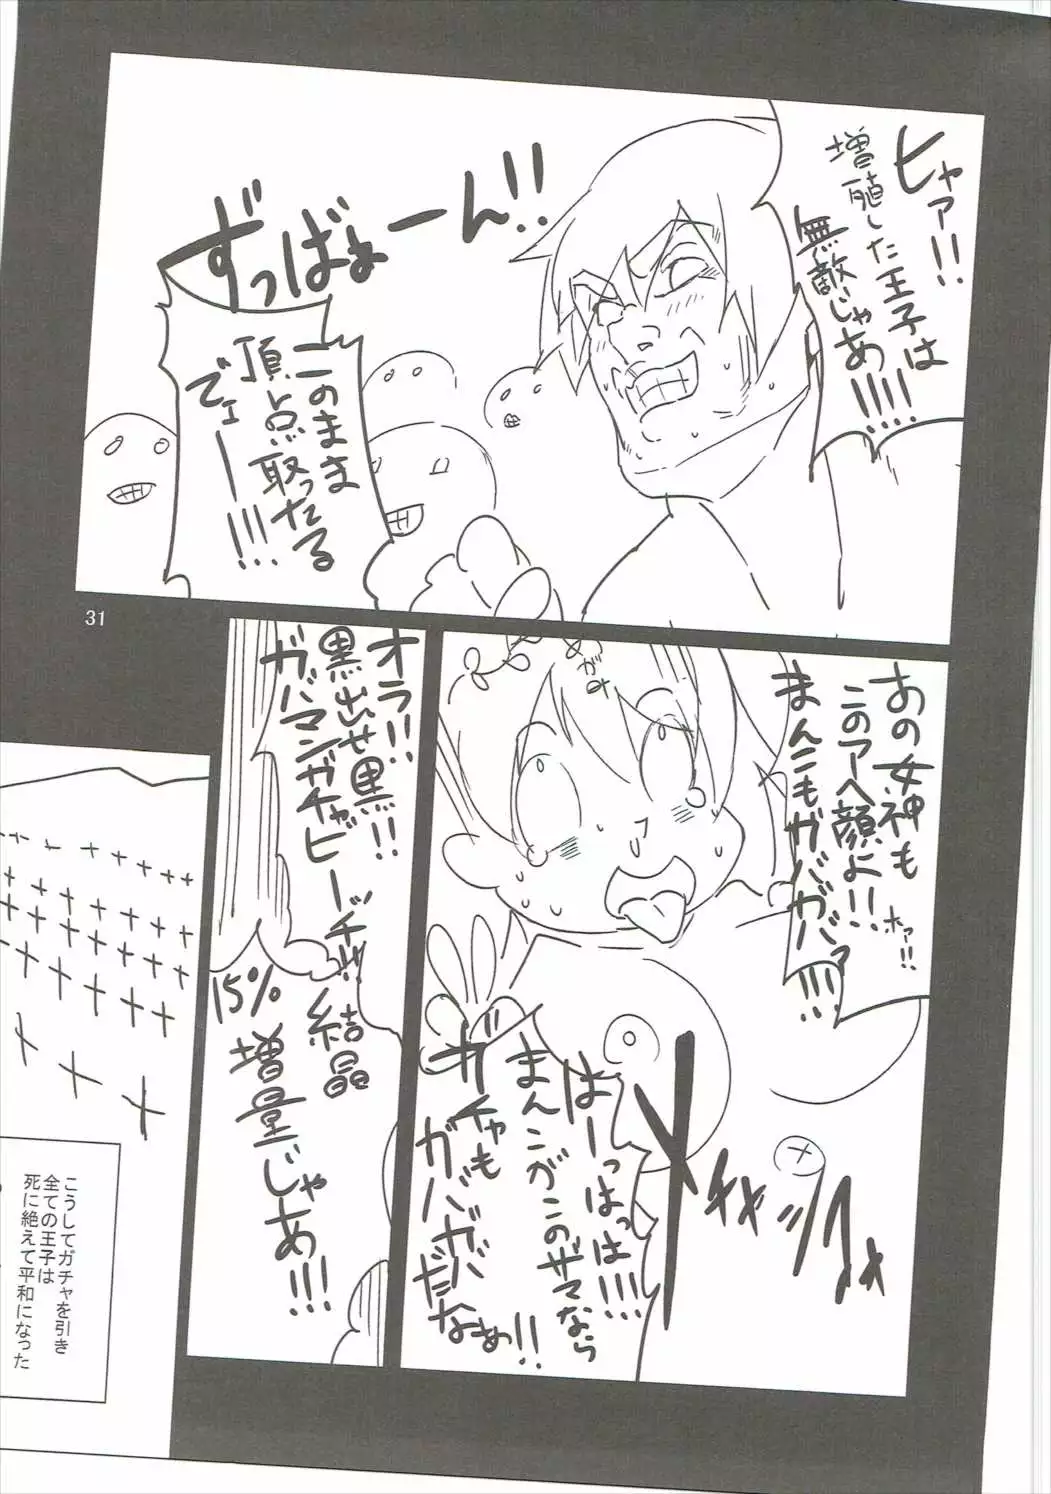 ヒャァ!!
増殖した王子は
無敵じゃあ!!!!
ずっばぁーん!!
このまま
頂点取ったる
でェー!!!
31
あの女神も
このアヘ顔よ!!
まんこもガバガバァ!!!
めがみ
はーっはっは!!!
まんこがこのザマなら
ガチャも
ガバガバ
だなぁ!!
オラ!!
黒出せ黒!!
ガバマンガチャビーッチ!!
結晶
15%
増量じゃあ!!!
こうしてガチャを引き
全ての王子は
死に絶えて平和になった